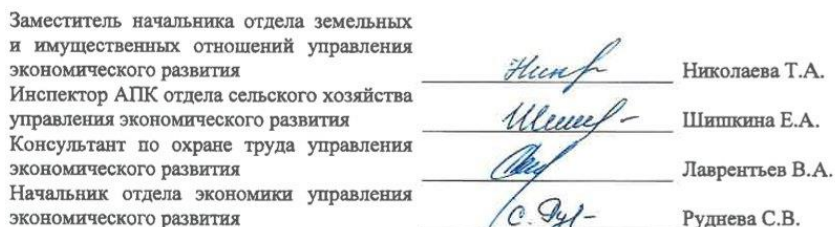 Заместитель начальника отдела земельных
и имущественных отношений управления
экономического развития Николаева Т.А.
Инспектор АПК отдела сельского хозяйства
управления экономического развития Шишкина Е.А.
Консультант по охране труда управления
экономического развития Лаврентьев В.А.
Начальник отдела экономики управления
экономического развития Руднева С.В.